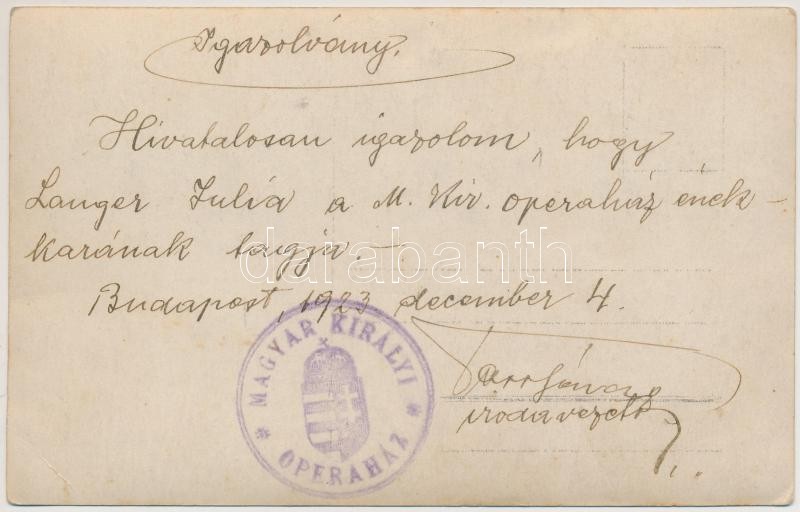 Igazolvány.
Hivatalosan igazolom, hogy
Langer Julia a M. Kir. operaház ének-
karának tagja.-
darabanth
Budapest, 1923 december 4.
MAGYAR KIRÁLYI
* OPERAHÁZ *
irodavezető